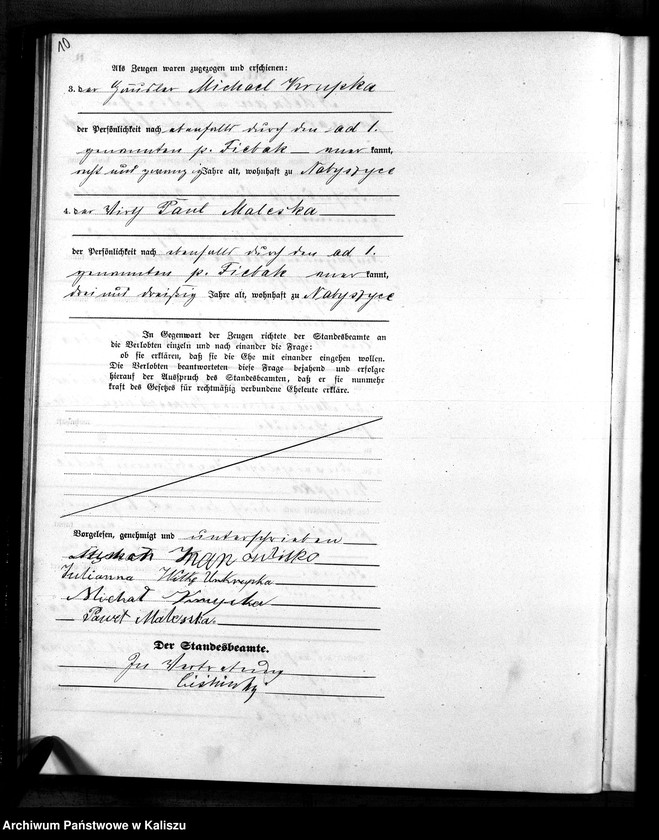 10
Als Zeugen waren zugezogen und erschienen:
3. der Häusler Michael Krupka
der Persönlichkeit nach ebenfalls durch den ad 1.
genannten p. Fiebak — aner kannt,
acht und zwanzig Jahre alt, wohnhaft zu Nabyszyce
4. der Wirth Paul Maleska
der Persönlichkeit nach ebenfalls durch den ad 1.
genannten p. Fiebak aner kannt,
drei und dreißig Jahre alt, wohnhaft zu Nabyszyce
In Gegenwart der Zeugen richtete der Standesbeamte an
die Verlobten einzeln und nach einander die Frage:
ob sie erklären, daß sie die Ehe mit einander eingehen wollen.
Die Verlobten beantworteten diese Frage bejahend und erfolgte
hierauf der Ausspruch des Standesbeamten, daß er sie nunmehr
kraft des Gesetzes für rechtmäßig verbundene Eheleute erkläre.
Vorgelesen, genehmigt und unterschrieben
Julianna
Michał Krupka
Paweł Maleska.
Der Standesbeamte.
In Vertretung
Archiwum Państwowe w Kaliszu